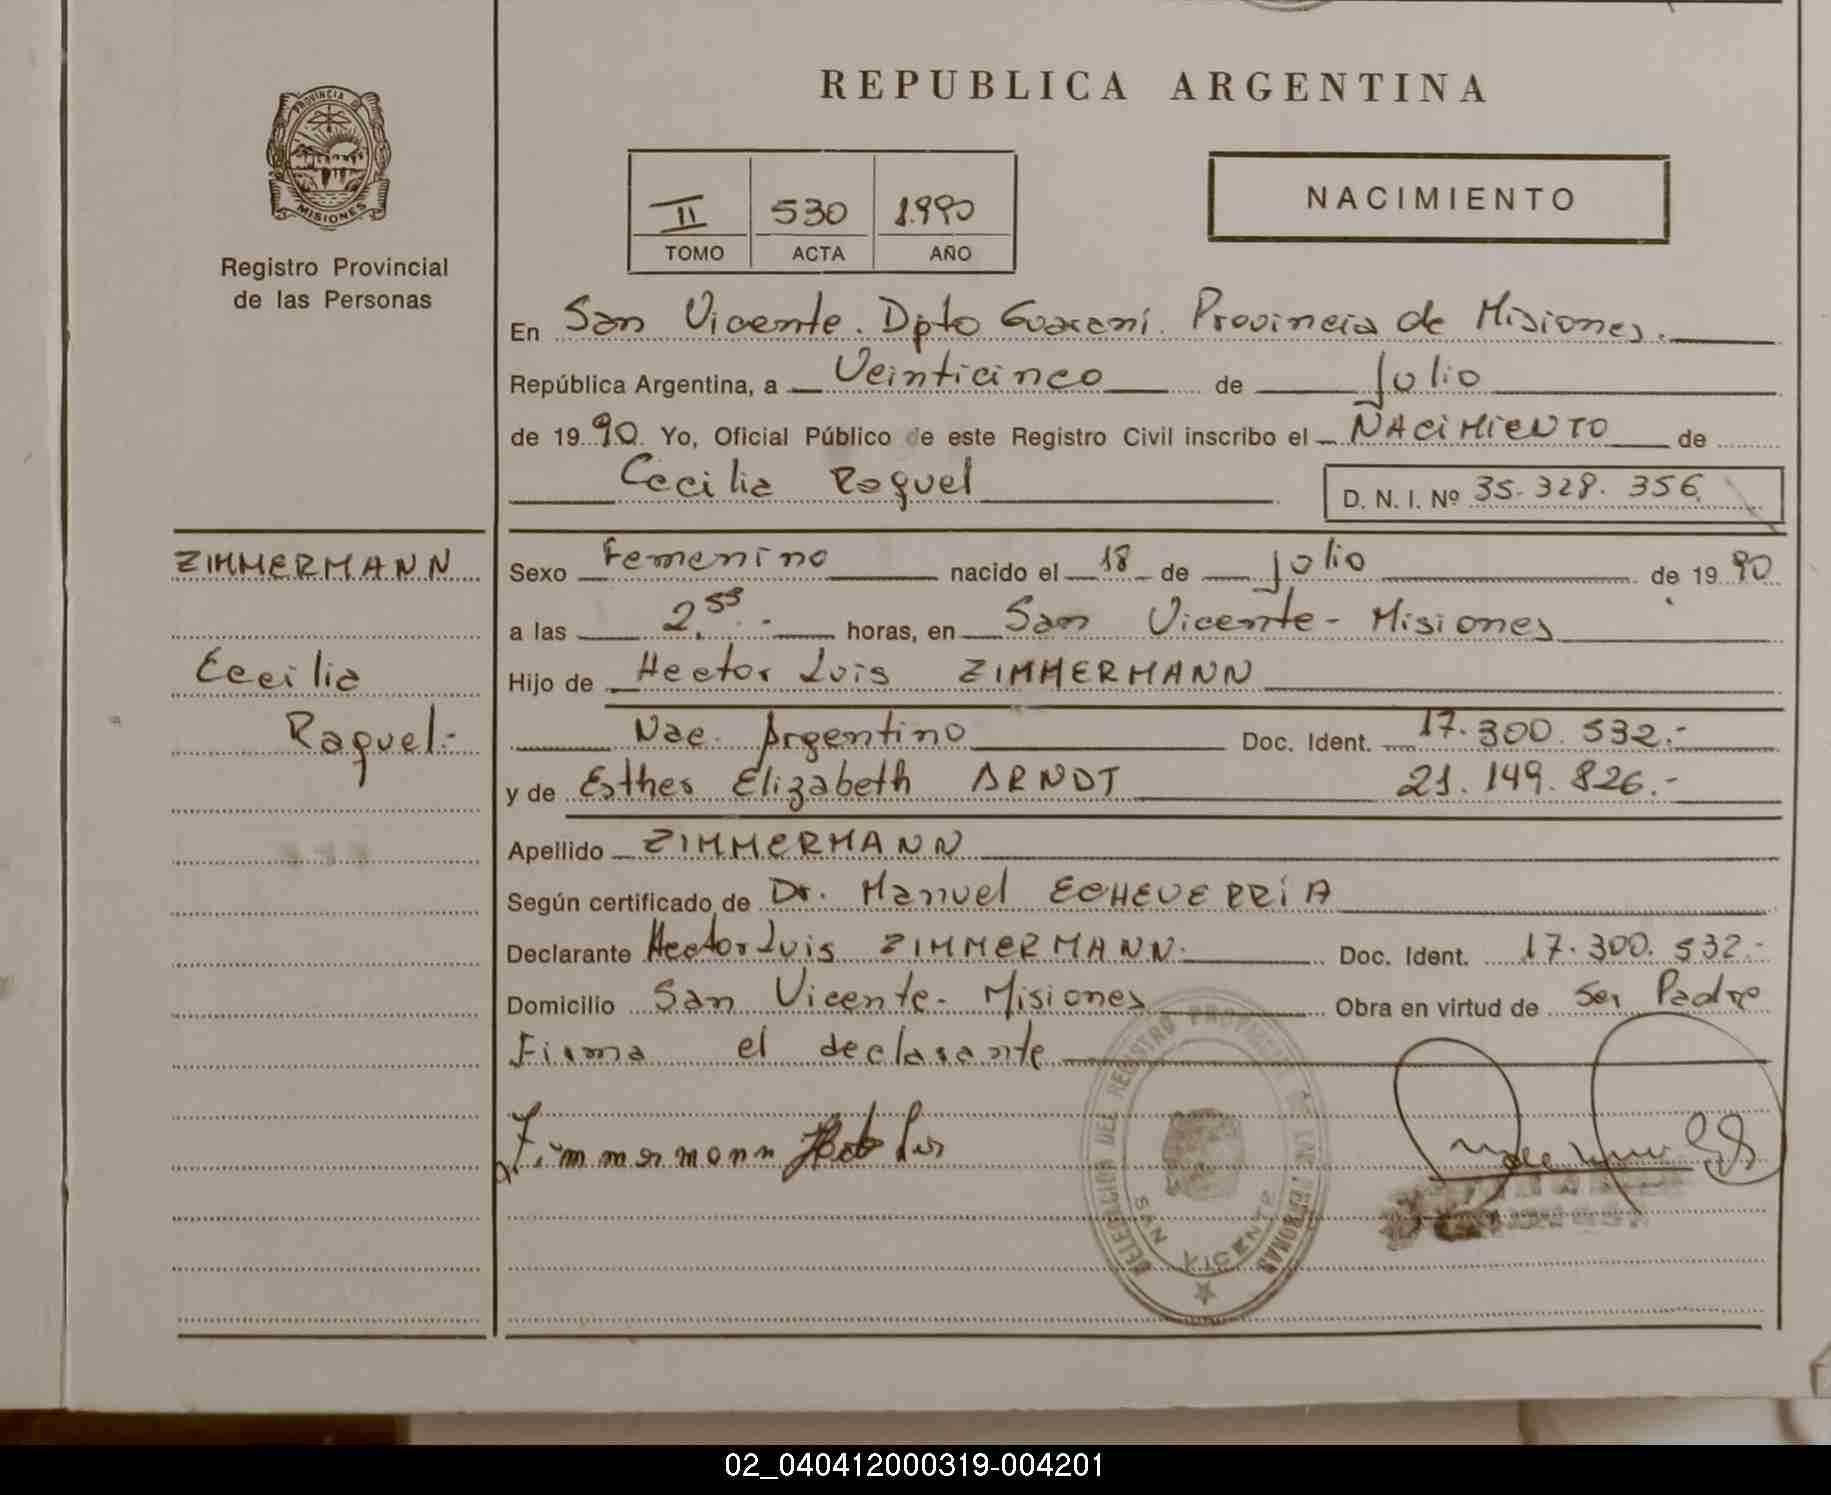 REPUBLICA ARGENTINA
PROVINCIA DE
MISIONES
Registro Provincial
de las Personas
II 530 1.990
TOMO ACTA AÑO
NACIMIENTO
En San Vicente. Dpto Guaraní. Provincia de Misiones.
República Argentina, a Veinticinco de Julio
de 1990. Yo, Oficial Público de este Registro Civil inscribo el NACIMIENTO de
Cecilia Raquel
D. N. I. Nº 35.328.356
ZIMMERMANN
Cecilia
Raquel.-
Sexo Femenino nacido el 18 de Julio de 1990
a las 2,55.- horas, en San Vicente - Misiones
Hijo de Hector Luis ZIMMERMANN
Nac. Argentino Doc. Ident. 17.300.532.-
y de Esther Elizabeth ARNDT 21.149.826.-
Apellido ZIMMERMANN
Según certificado de Dr. Manuel ECHEVERRíA
Declarante Hector Luis ZIMMERMANN. Doc. Ident. 17.300.532.-
Domicilio San Vicente - Misiones Obra en virtud de Ser Padre
Firma el declarante
Zimmermann Hector Luis
DELEGACION DEL REGISTRO PROVINCIAL DE LAS PERSONAS
SAN VICENTE
02_040412000319-004201